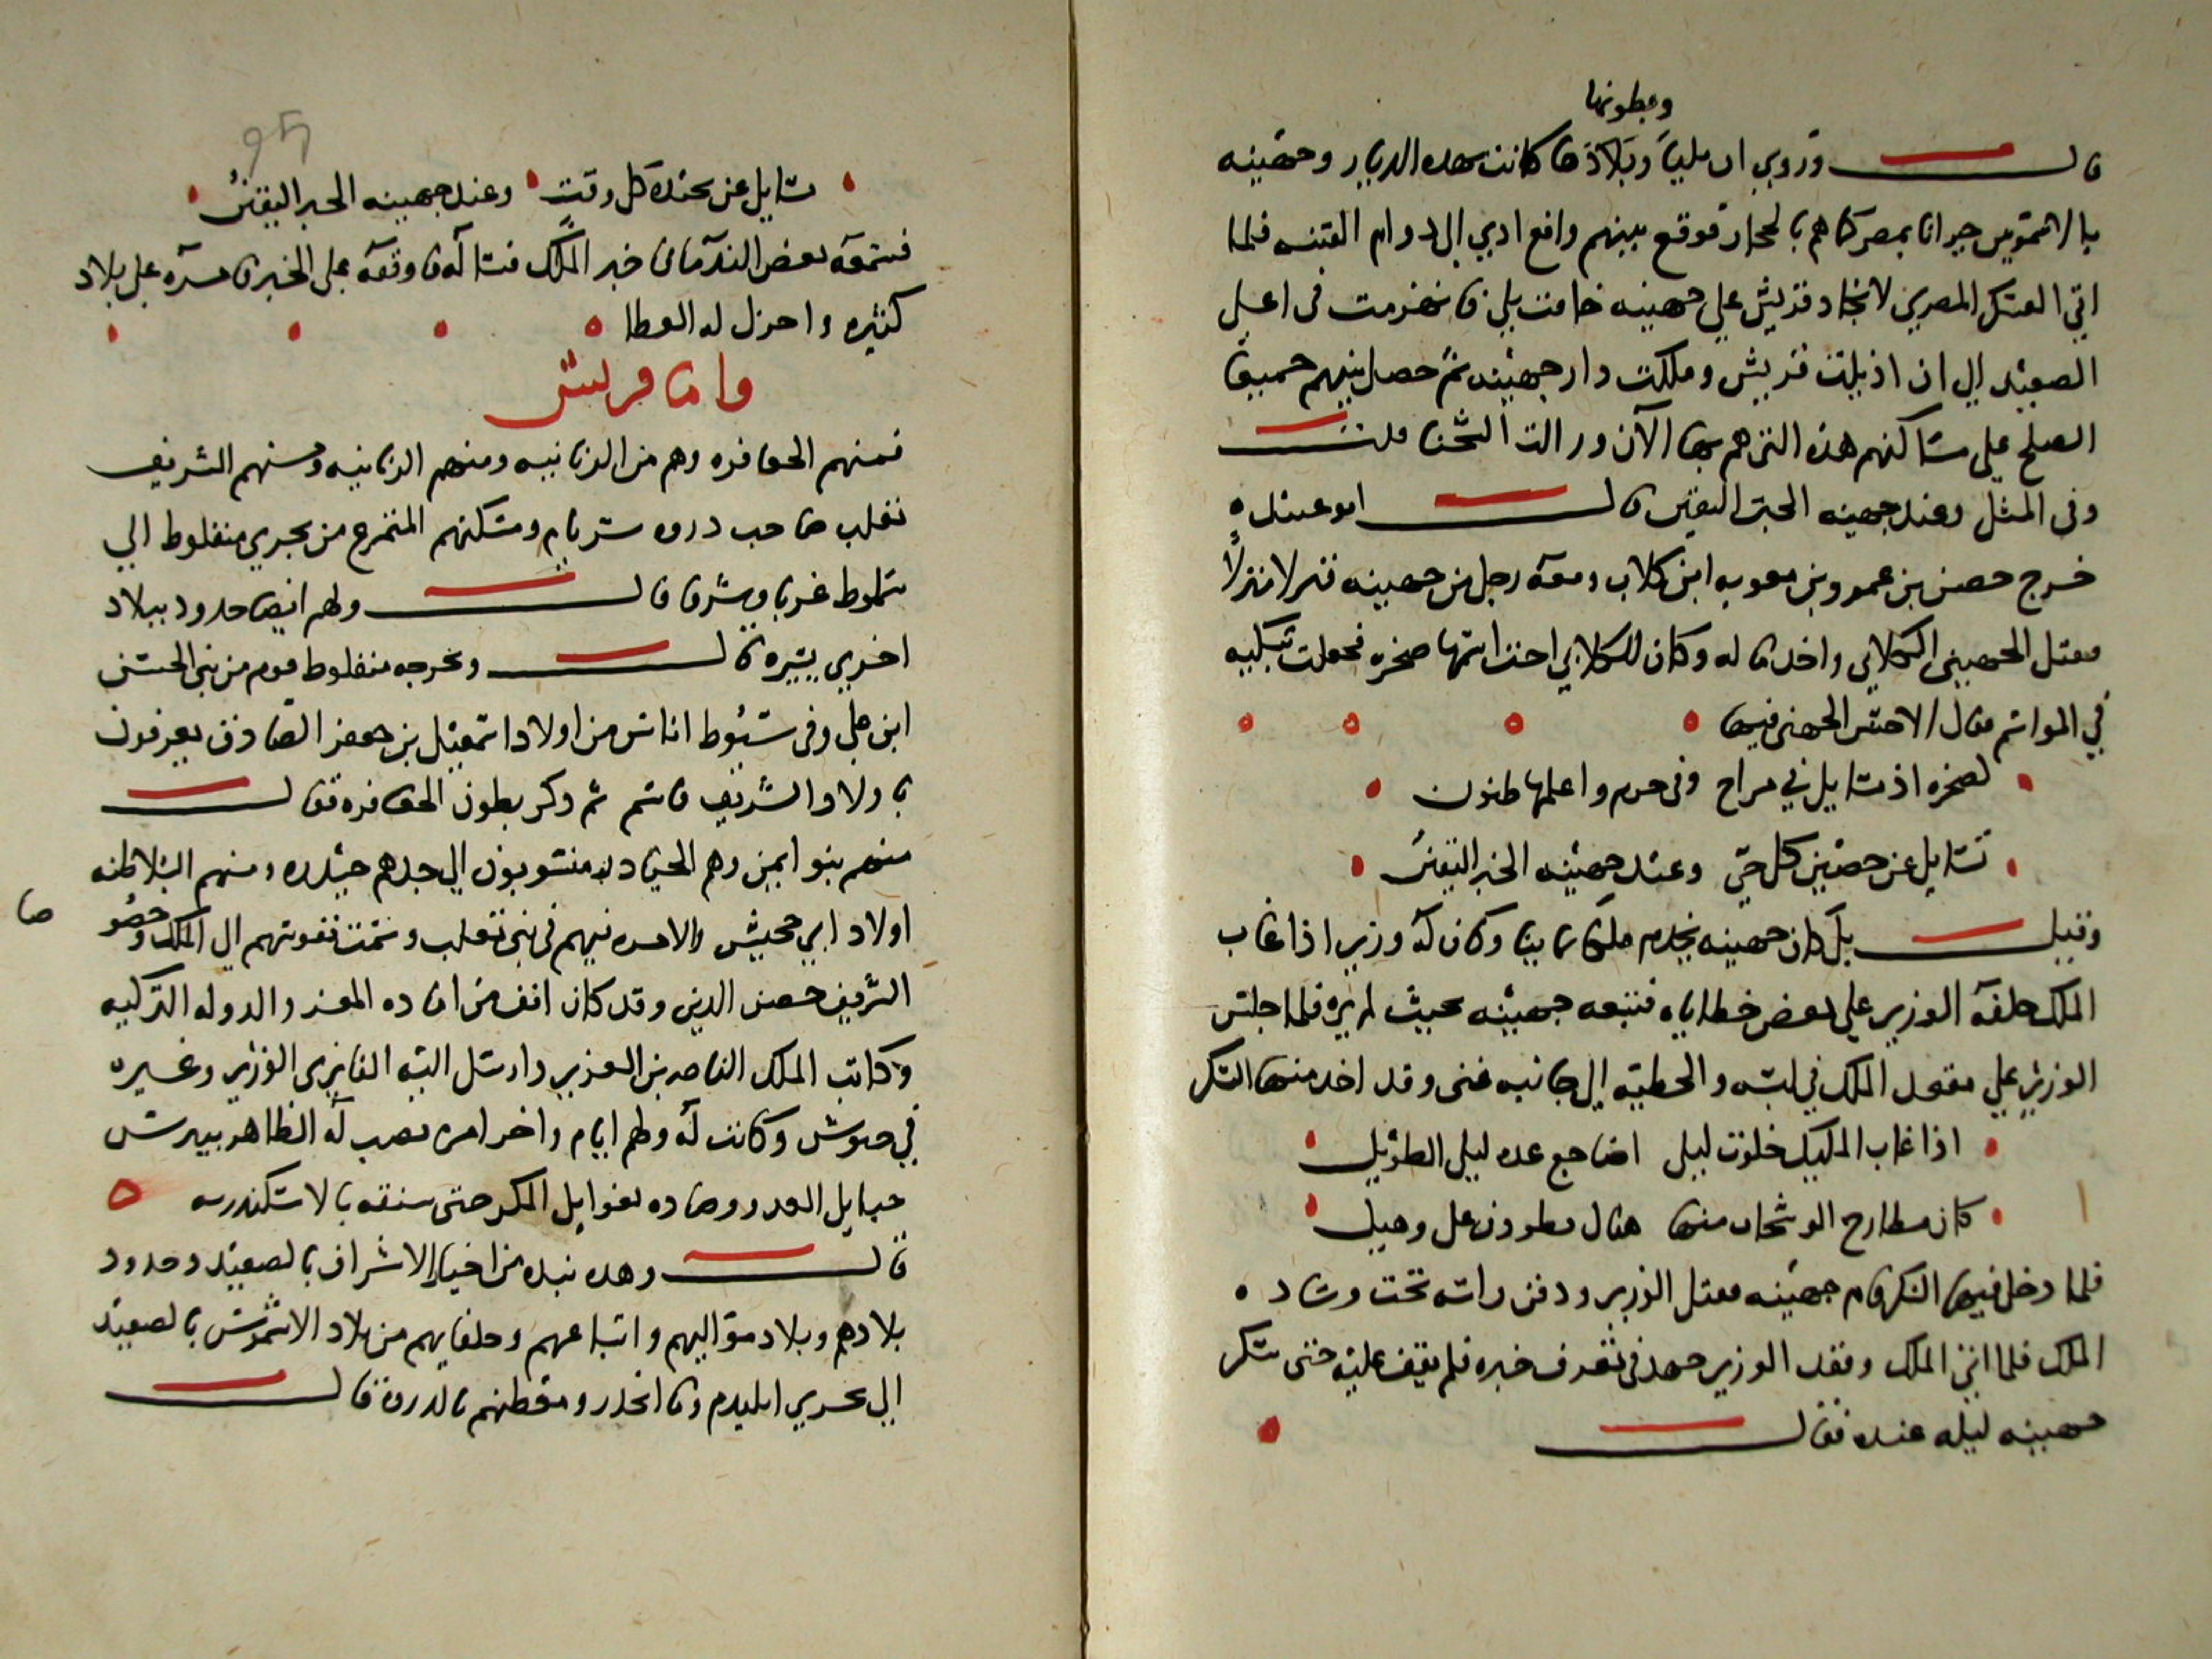 وبطونها
قال وروي ان بليا وبلادها كانت هذه الديار وجهينه
بالاشمونين جيرانا بمصر كما هم بالحجاز فوقع بينهم واقع ادي الي دوام الفتنه فلما
اتي العسكر المصري لانجاد قريش علي جهينه خافت بلي فانهزمت في اعلي
الصعيد الي ان اذيلت قريش وملكت دار جهينه ثم حصل بينهم جميعا
الصلح علي مساكنهم هذه التي هم بها الآن وزالت الشحنا قلت
وفي المثل وعند جهينه الخبر اليقين قال ابو عبيده
خرج حصين بن عمرو بن معويه ابن كلاب ومعه رجل من جهينه فنزلا منزلا
فقتل الجهيني الكلابي واخد ماله وكان للكلابي اخت اسمها صخره فجعلت تبكيه
في المواسم فقال الاخنس الجهني فيها
لصخره اذ تسايل في مراح وفي جرم واعلمها ظنون
تسايل عن حصين كل حي وعند جهينه الخبر اليقين
وقيل بل كان جهينه يخدم ملكا يمانيا وكان له وزير اذا غاب
الملك خلفه الوزير علي بعض خطاياه فتبعه جهينه بحيث لم يره فلما جلس
الوزير علي مقعد الملك في لبسه والحظيه الي جانبه غني وقد اخد منها السكر
اذا غاب المليك خلوت ليلي اضاجع عنده ليلي الطويل
كان مطارح الوشحان منها
فلما دخل فيها السكر قام جهينه فقتل الوزير ودفن راسه تحت وساده
الملك فلما اتي الملك وفقد الوزير جهد في تعرف خبره فلم يقف عليه حتي سكر
جهينه ليله عنده فقال
تسايل عن حنده كل وقت وعند جهينه الخبر اليقين
فسمعه بعض الندمان خبر الملك فساله فاوقفه علي الخبر فامره علي بلاد
كثيره واجزل له العطا
واما قريش
فمنهم الجعافره وهم من الزيانبه ومنهم الزيانبه ومنهم الشريف
ثعلب صاحب دروه سربام ومسكنهم المتفرع من بحري منفلوط الي
سملوط غربا وشرقا قال ولهم ايضا حدود ببلاد
اخري يسيره قال وبخرجه منفلوط قوم من بني الحسن
ابن علي وفي سيوط اناس من اولاد اسمعيل بن جعفر الصادق يعرفون
باولاد الشريف قاسم ثم ذكر بطون الجعافره فقال
منهم بنو ايمن وهم الحيادره منسوبون الي جدهم حيدره ومنهم السلاطنه
اولاد ابي جحيش والامره فيهم في بني ثعلب وسمت نفوسهم الي الملك وخصو
صا
الشريف حصن الدين وقد كان انف من اماره المعز والدوله التركيه
وكاتب الملك الناصر بن العزيز وارسل اليه الفايزي الوزير وغيره
في جيوش وكانت له ولهم ايام واخر امره نصب له الظاهر بيبرس
حبايل الغدر وصاده بغوايل المكر حتي شنقه بالاسكندريه
قال وهده نبده من اخبار الاشراف بالصعيد وحدود
بلادهم وبلاد مواليهم واتباعهم وحلفايهم من بلاد الاشمونين بالصعيد
الي بحري اتليدم وما انحدر ومعظمهم بالدروه قال